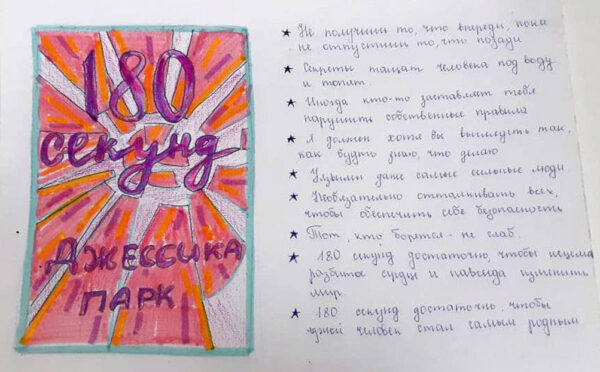 180
секунд
Джессика
Парк
★ Не получишь то, что впереди, пока
не отпустишь то, что позади
★ Секреты тащат человека под воду
и топят.
★ Иногда кто-то заставляет тебя
нарушить собственные правила
★ Я должен хотя бы выглядеть так,
как будто знаю, что делаю
★ Уязвимы даже самые сильные люди
★ Необязательно отталкивать всех,
чтобы обеспечить себе безопасность
★ Тот, кто борется - не слаб.
★ 180 секунд достаточно, чтобы исцелить
разбитое сердце и навсегда изменить
мир.
★ 180 секунд достаточно, чтобы
чужой человек стал самым родным